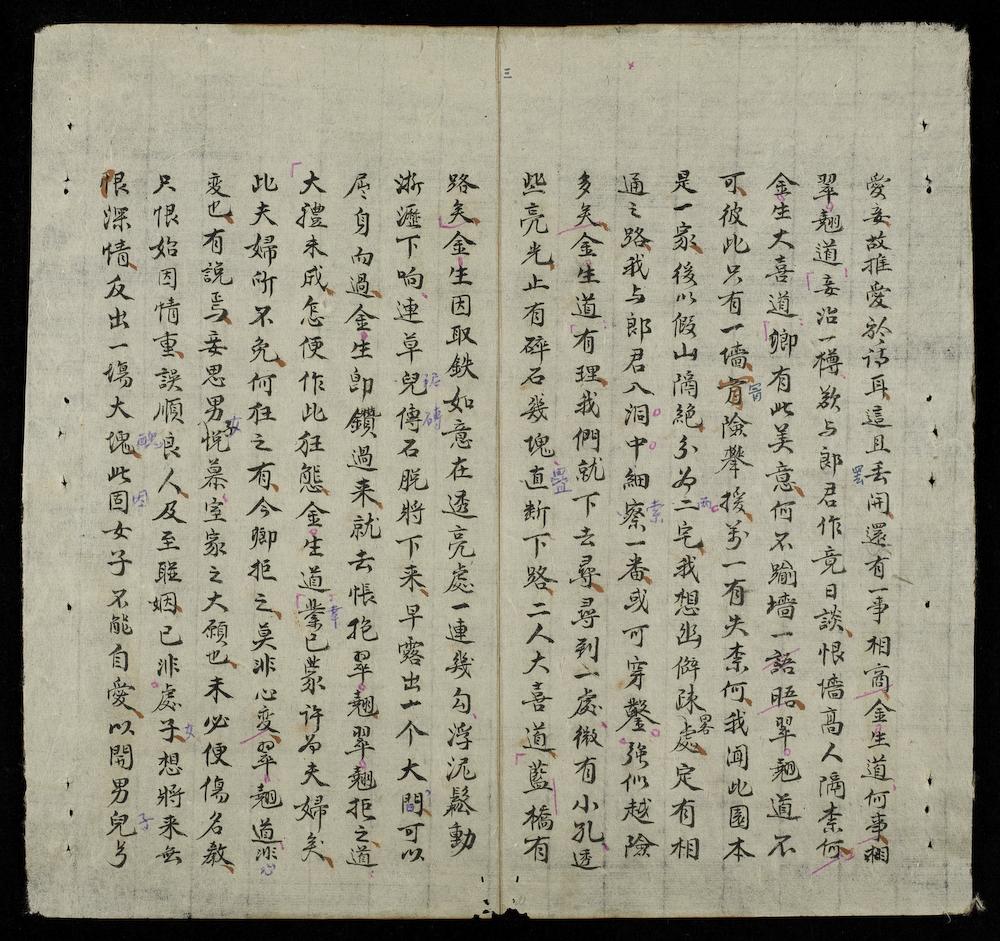 三
愛妾故推愛於詩耳這且丟開還有一事相商金生道何事相
翠翹道妾治一樽欲与郎君作竟日談恨墻高人隔柰何
金生大喜道卿有此美意何不踰墻一語晤翠翹道不
可彼此只有一墻冒險攀援万一有失柰何我闻此園本
是一家後以假山隔絶分为二宅我想幽僻疎處定有相
通之路我与郎君入洞中細察一番或可穿鑿強似越險
多矣金生道有理我們就下去尋尋到一處微有小孔透
些亮光止有碎石幾塊直断下路二人大喜道藍橋有
路矣金生因取鉄如意在透亮處一連幾勾浮泥鬆動
淅瀝下响連草兒傳石脱將下来早露出一个大間可以
屈身而過金生即鑽過来就去悵抱翠翹翠翹拒之道
大禮未成怎便作此狂態金生道業已蒙许为夫婦矣
此夫婦所不免何狂之有今卿拒之莫非心变翠翹道非
变也有説焉妾思男悦慕室家之大願也未必便傷名教
只恨始因情重誤順良人及至聮姻已非處子想將来無
恨深情反出一塲大塊此固女子不能自愛以開男兒兮